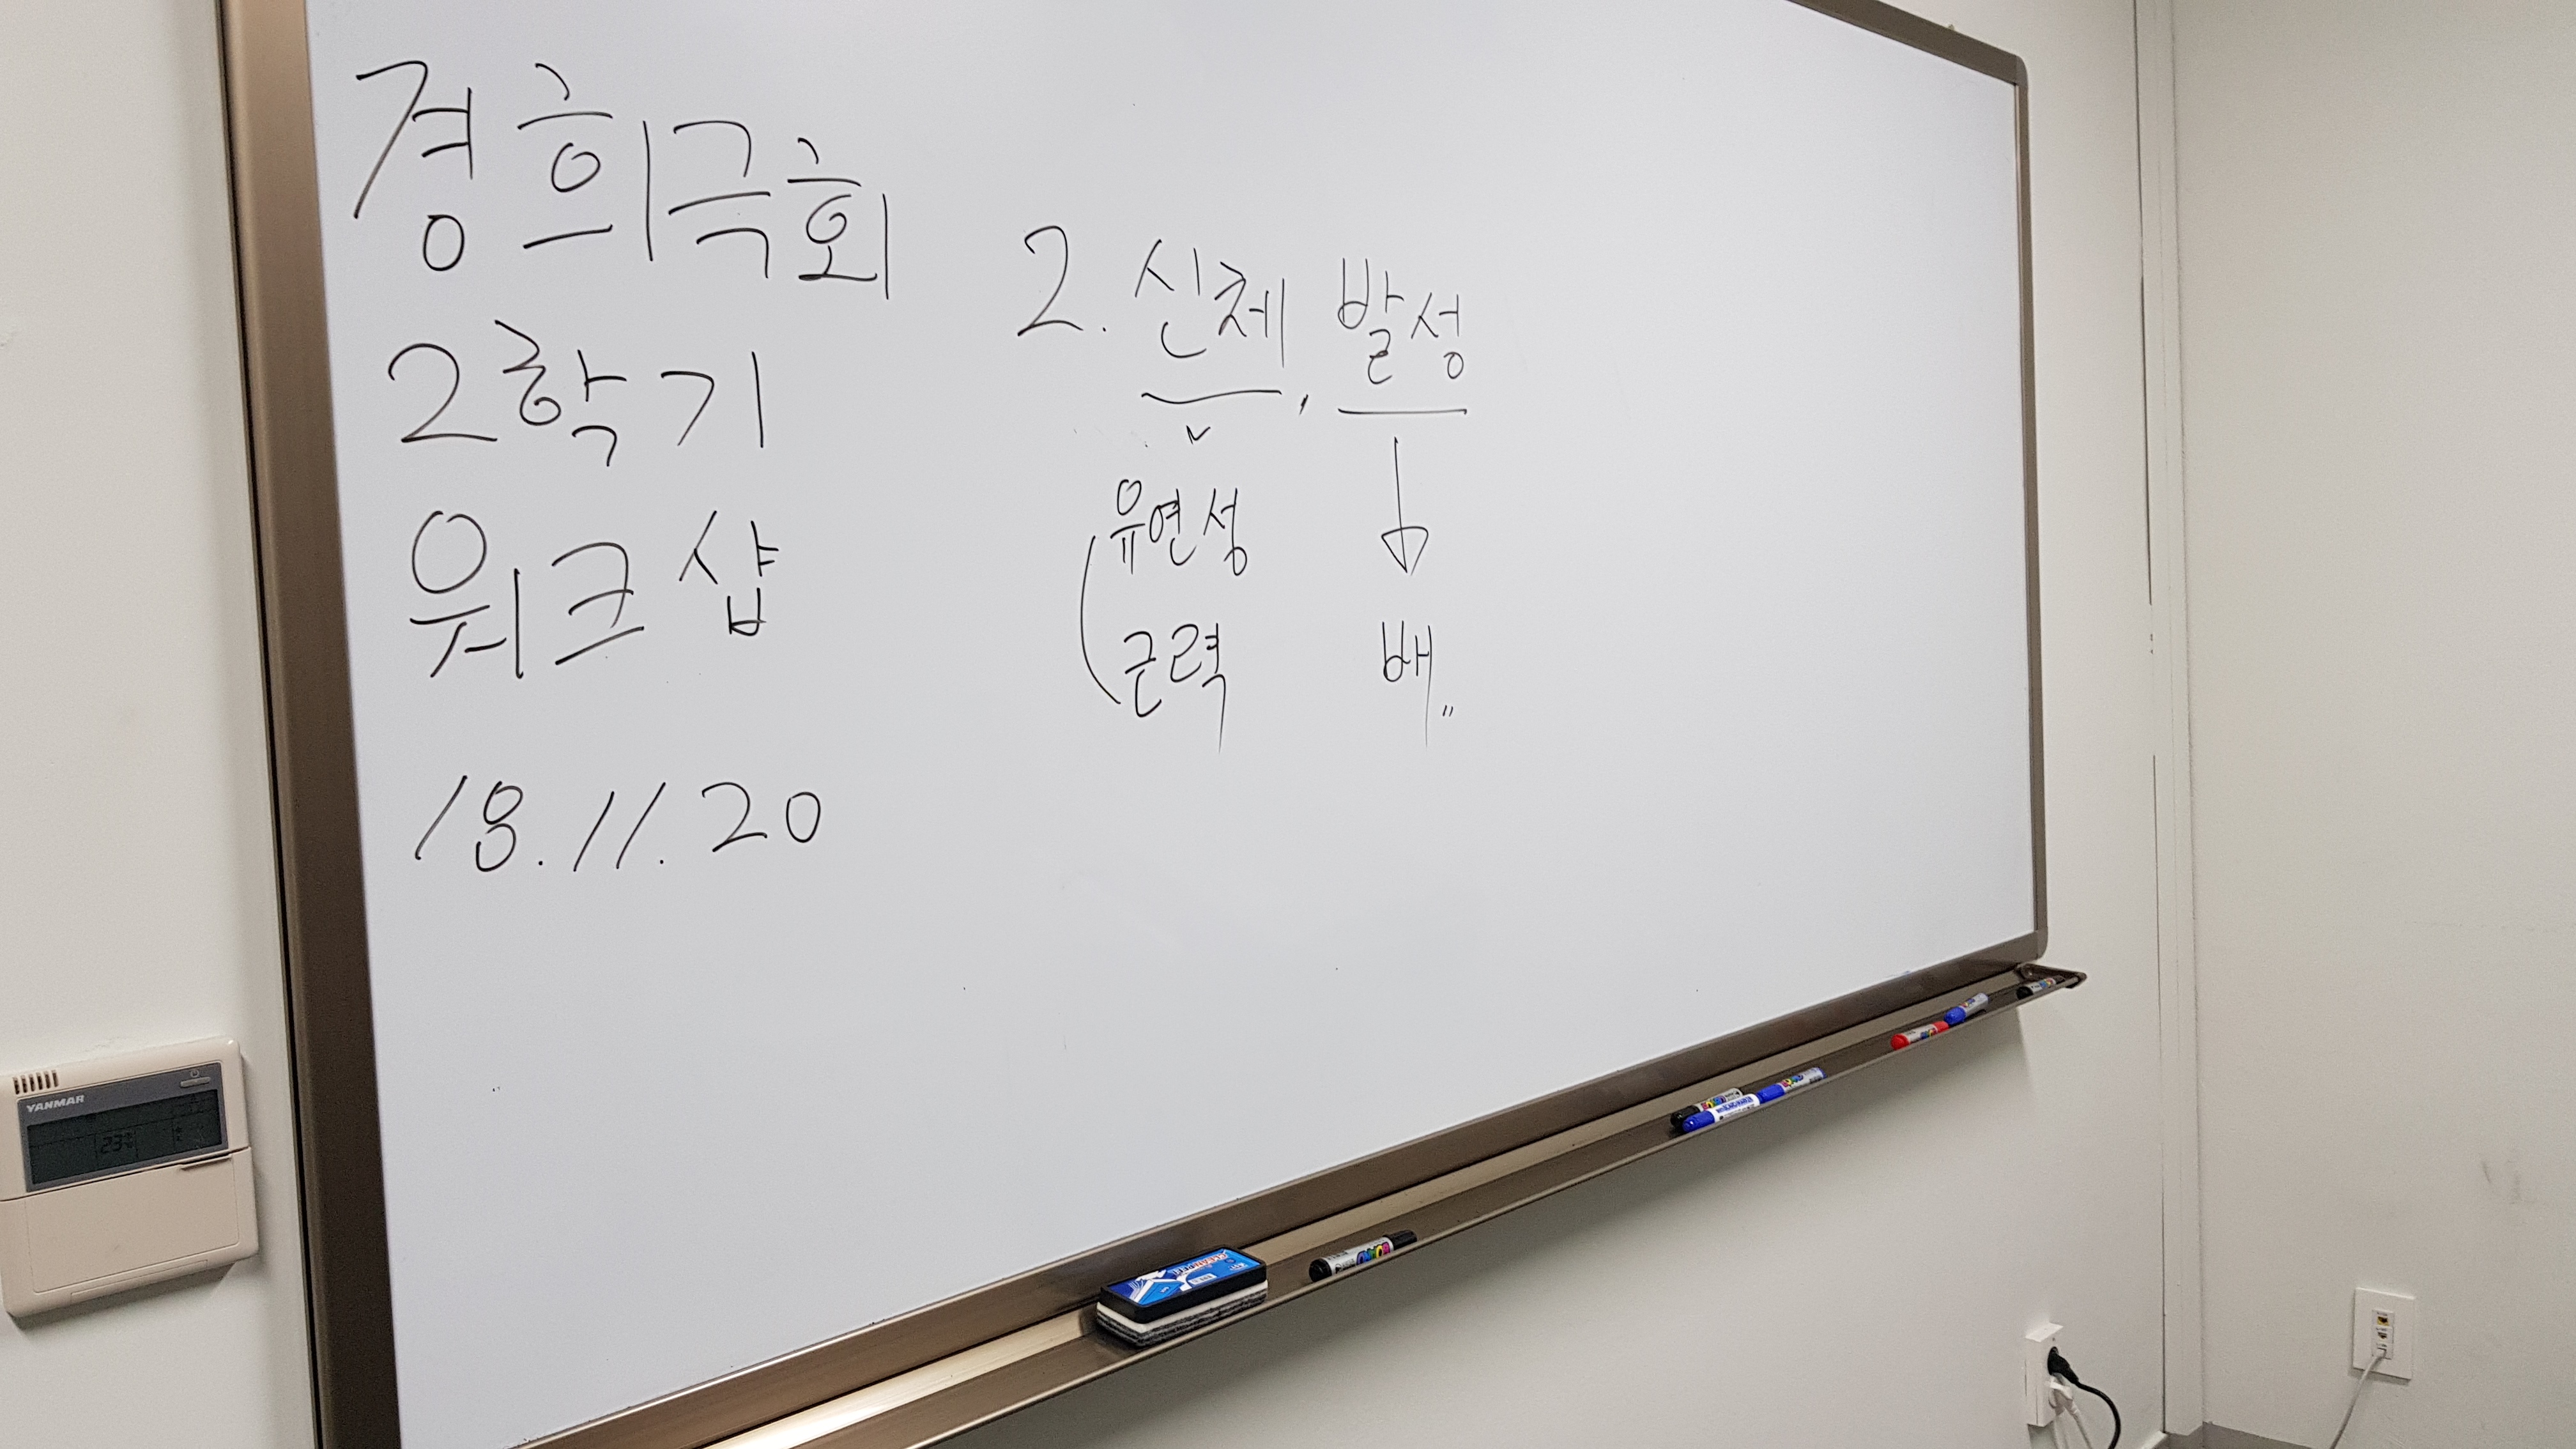 경희극회
2학기
워크샵
18.11.20
2. 신체, 발성
유연성
근력
배
YANMAR
23